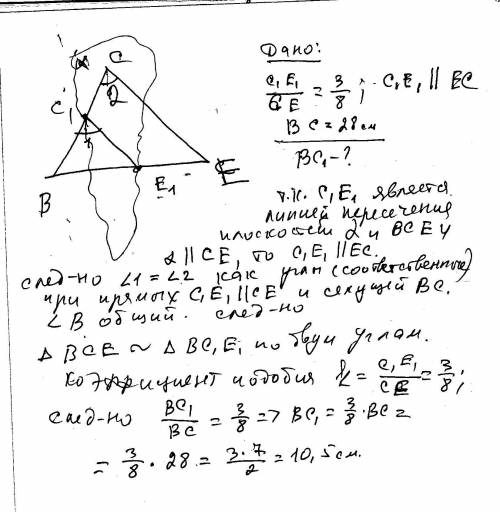 Дано:
C₁E₁/CE = 3/8; C₁E₁ || EC
BC = 28 см
BC₁ - ?
α
C
2
C₁
1
B
E₁
E
т.к. C₁E₁ является
линией пересечения
плоскостей α и BCE и
α || CE, то C₁E₁ || EC.
след-но ∠1 = ∠2 как углы (соответственные)
при прямых C₁E₁ || CE и секущей BC.
∠B общий. след-но
△ BCE ~ △ BC₁E₁ по двум углам.
Коэффициент подобия k = C₁E₁/CE = 3/8;
след-но BC₁/BC = 3/8 => BC₁ = 3/8 · BC =
= 3/8 · 28 = 3·7/2 = 10,5 см.